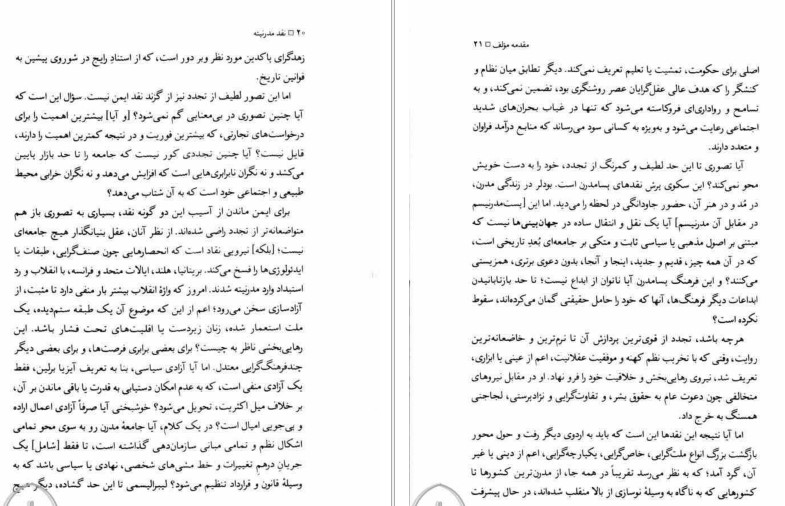 ۲۰ □ نقد مدرنیته
زهدگرای پاکدین مورد نظر وبر دور است، که از استناد رایج در شوروی پیشین به
قوانین تاریخ.
اما این تصور لطیف از تجدد نیز از گزند نقد ایمن نیست. سؤال این است که
آیا چنین تصوری در بی‌معنایی گم نمی‌شود؟ [و آیا] بیشترین اهمیت را برای
درخواست‌های تجارتی، که بیشترین فوریت و در نتیجه کمترین اهمیت را دارند،
قایل نیست؟ آیا چنین تجددی کور نیست که جامعه را تا حد بازار پایین
می‌کشد و نه نگران نابرابری‌هایی است که افزایش می‌دهد و نه نگران خرابی محیط
طبیعی و اجتماعی خود است که به آن شتاب می‌دهد؟
برای ایمن ماندن از آسیب این دو گونه نقد، بسیاری به تصوری باز هم
متواضعانه‌تر از تجدد راضی شده‌اند. از نظر آنان، عقل بنیانگذار هیچ جامعه‌ای
نیست؛ [بلکه] نیرویی نقاد است که انحصارهایی چون صنف‌گرایی، طبقات یا
ایدئولوژی‌ها را فسخ می‌کند. بریتانیا، هلند، ایالات متحد و فرانسه، با انقلاب و رد
استبداد وارد مدرنیته شدند. امروز که واژهٔ انقلاب بیشتر بار منفی دارد تا مثبت، از
آزادسازی سخن می‌رود؛ اعم از این که موضوع آن یک طبقه ستم‌دیده، یک
ملت استعمار شده، زنان زیردست یا اقلیت‌های تحت فشار باشد. این
رهایی‌بخشی ناظر به چیست؟ برای بعضی برابری فرصت‌ها، و برای بعضی دیگر
چندفرهنگ‌گرایی معتدل. اما آیا آزادی سیاسی، بنا به تعریف آیزیا برلین، فقط
یک آزادی منفی است، که به عدم امکان دستیابی به قدرت یا باقی ماندن بر آن،
بر خلاف میل اکثریت، تحویل می‌شود؟ خوشبختی آیا صرفاً آزادی اعمال اراده
و بی‌جویی امیال است؟ در یک کلام، آیا جامعهٔ مدرن رو به سوی محو تمامی
اشکال نظم و تمامی مبانی سازمان‌دهی گذاشته است، تا فقط [شامل] یک
جریان درهم تغییرات و خط مشی‌های شخصی، نهادی یا سیاسی باشد که به
وسیلهٔ قانون و قرارداد تنظیم می‌شود؟ لیبرالیسمی تا این حد گشاده، دیگر هیچ
مقدمه مؤلف □ ۲۱
اصلی برای حکومت، تمشیت یا تعلیم تعریف نمی‌کند. دیگر تطابق میان نظام و
کنشگر را که هدف عالی عقل‌گرایان عصر روشنگری بود، تضمین نمی‌کند، و به
تسامح و رواداری‌ای فروکاسته می‌شود که تنها در غیاب بحران‌های شدید
اجتماعی رعایت می‌شود و به‌ویژه به کسانی سود می‌رساند که منابع درآمد فراوان
و متعدد دارند.
آیا تصوری تا این حد لطیف و کمرنگ از تجدد، خود را به دست خویش
محو نمی‌کند؟ این سکوی پرش نقدهای پسامدرن است. بودلر در زندگی مدرن،
در مُد و در هنر آن، حضور جاودانگی در لحظه را می‌دید. اما این [پست‌مدرنیسم
در مقابل آن مدرنیسم] آیا یک نقل و انتقال ساده در جهان‌بینی‌ها نیست که
مبتنی بر اصول مذهبی یا سیاسی ثابت و متکی بر جامعه‌ای بُعدِ تاریخی است،
که در آن همه چیز، قدیم و جدید، اینجا و آنجا، بدون دعوی برتری، همزیستی
می‌کنند؟ و این فرهنگ پسامدرن آیا ناتوان از ابداع نیست؛ تا حد بازتابانیدن
ابداعات دیگر فرهنگ‌ها، آنها که خود را حامل حقیقتی گمان می‌کرده‌اند، سقوط
نکرده است؟
هرچه باشد، تجدد از قوی‌ترین پردازش آن تا نرم‌ترین و خاضعانه‌ترین
روایت، وقتی که با تخریب نظم کهنه و موفقیت عقلانیت، اعم از عینی یا ابزاری،
تعریف شد، نیروی رهایی‌بخش و خلاقیت خود را فرو نهاد. او در مقابل نیروهای
متخالفی چون دعوت عام به حقوق بشر، و تفاوت‌گرایی و نژادپرستی، لجاجتی
همسنگ به خرج داد.
اما آیا نتیجه این نقدها این است که باید به اردوی دیگر رفت و حول محور
بازگشت بزرگ انواع ملت‌گرایی، خاص‌گرایی، یکپارچه‌گرایی، اعم از دینی یا غیر
آن، گرد آمد؛ که به نظر می‌رسد تقریباً در همه جا، از مدرن‌ترین کشورها تا
کشورهایی که به ناگاه به وسیلهٔ نوسازی از بالا منقلب شده‌اند، در حال پیشرفت